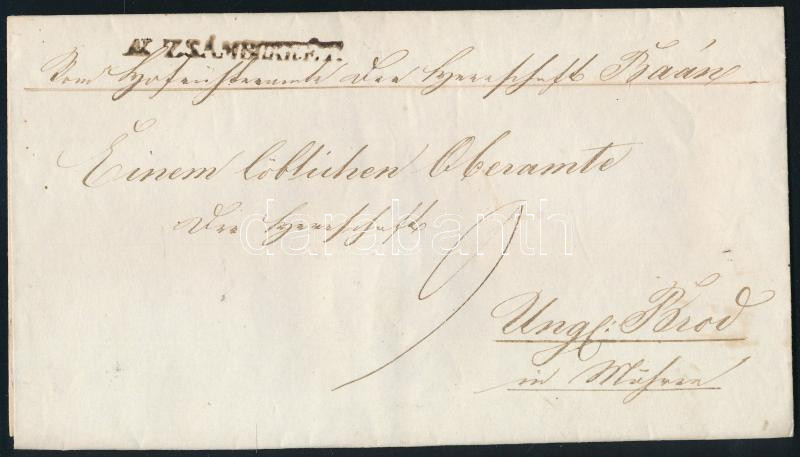 N. ZSÁMBOKRÉT.
Vom Hofrichteramte der Herrschaft Baán
Einem löblichen Oberamte
der Herrschaft
darabanth
Ung: Brod
in Mähren